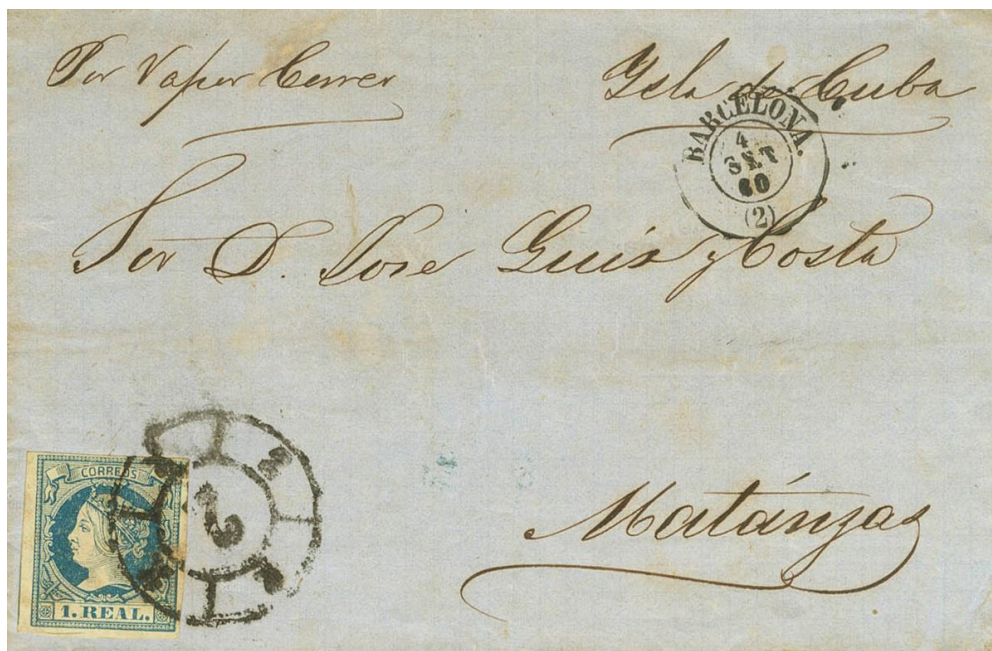 Por Vapor Correo
Ysla de Cuba
BARCELONA.
4
SET
60
(2)
Sor D. José Guis y Costa
Matánzas
CORREOS
1. REAL.
2